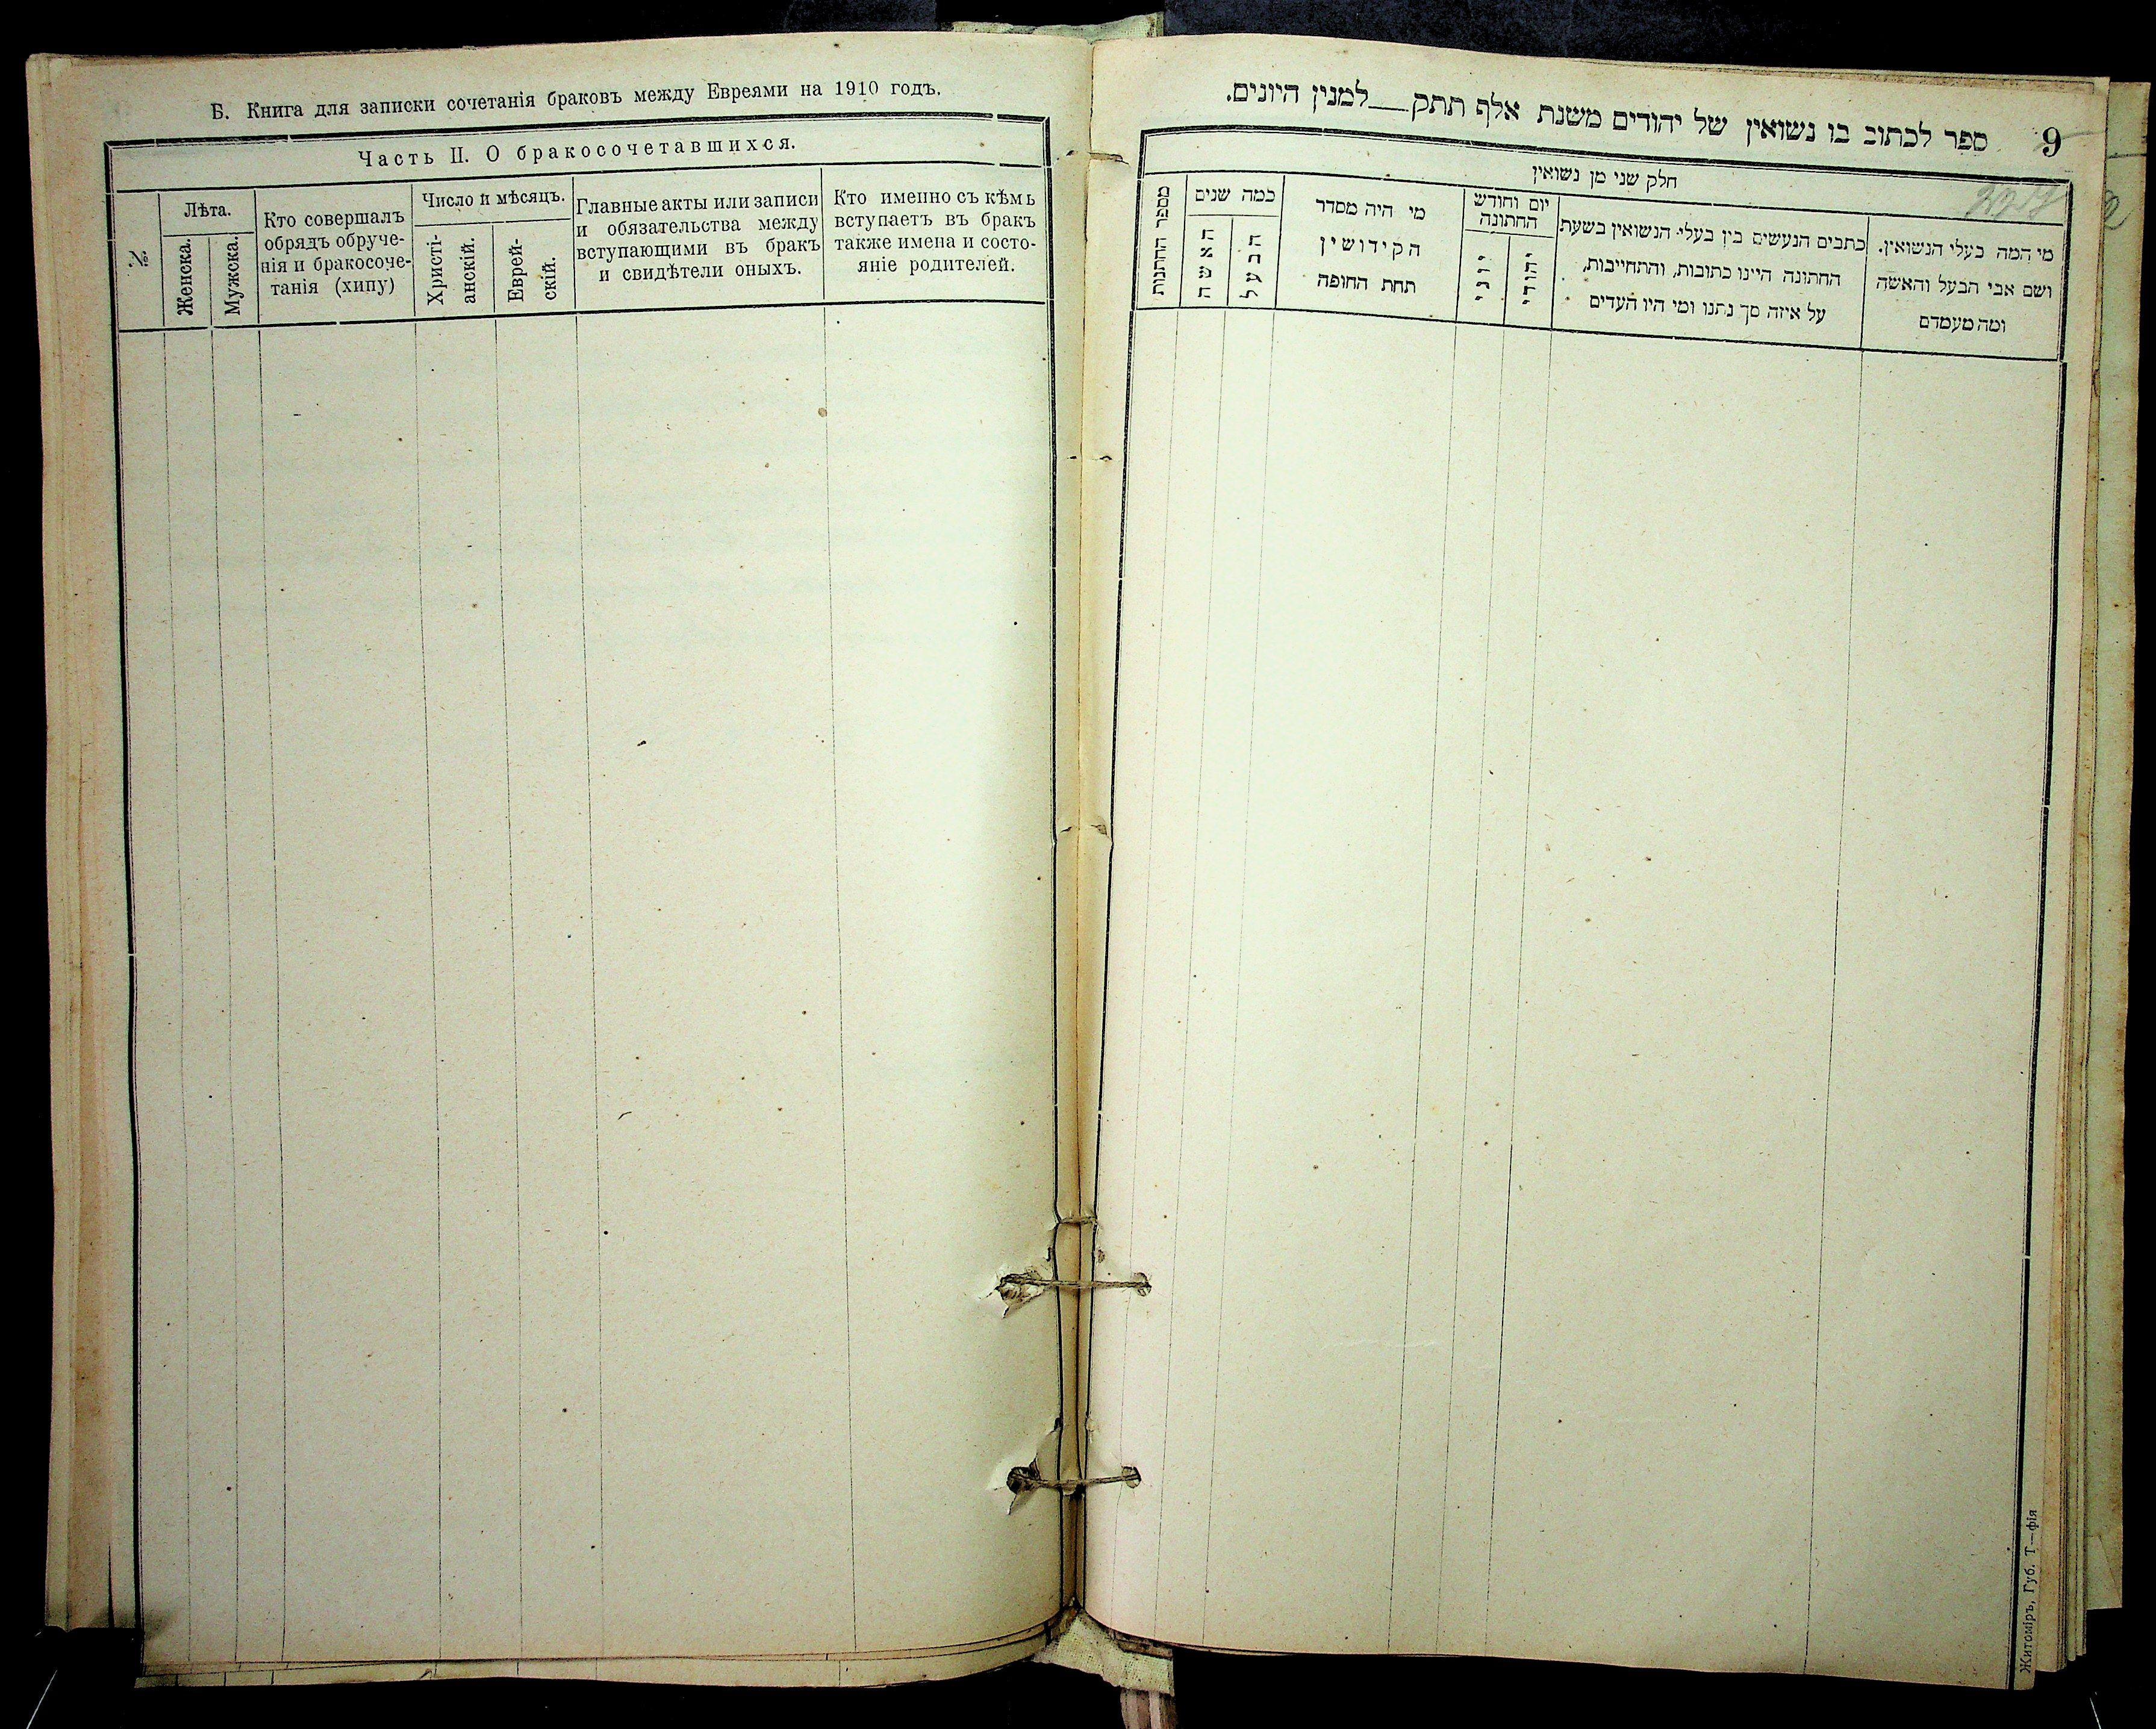 Б. Книга для записки сочетанія браковъ между Евреями на 1910 годъ.
Часть II. О бракосочетавшихся.
№
Лѣта.
Женска.
Мужска.
Кто совершалъ
обрядъ обруче-
нія и бракосоче-
танія (хипу)
Число и мѣсяцъ.
Христі-
анскій.
Еврей-
скій.
Главные акты или записи
и обязательства между
вступающими въ бракъ
и свидѣтели оныхъ.
Кто именно съ кѣмъ
вступаетъ въ бракъ
также имена и состо-
яніе родителей.
9
ספר לכתוב בו נשואין של יהודים משנת אלף תתק — למנין היונים.
חלק שני מן נשואין
מי המה בעלי הנשואין.
ושם אבי הבעל והאשה
ומה מעמדם
כתבים הנעשים בין בעלי הנשואין בשעת
החתונה היינו כתובות, והתחייבות,
על איזה סך נתנו ומי היו העדים
יום וחודש
החתונה
יהודי
יוני
מי היה מסדר
הקידושין
תחת החופה
כמה שנים
הבעל
האשה
מספר החתנות
Житоміръ, Губ. Т—фія